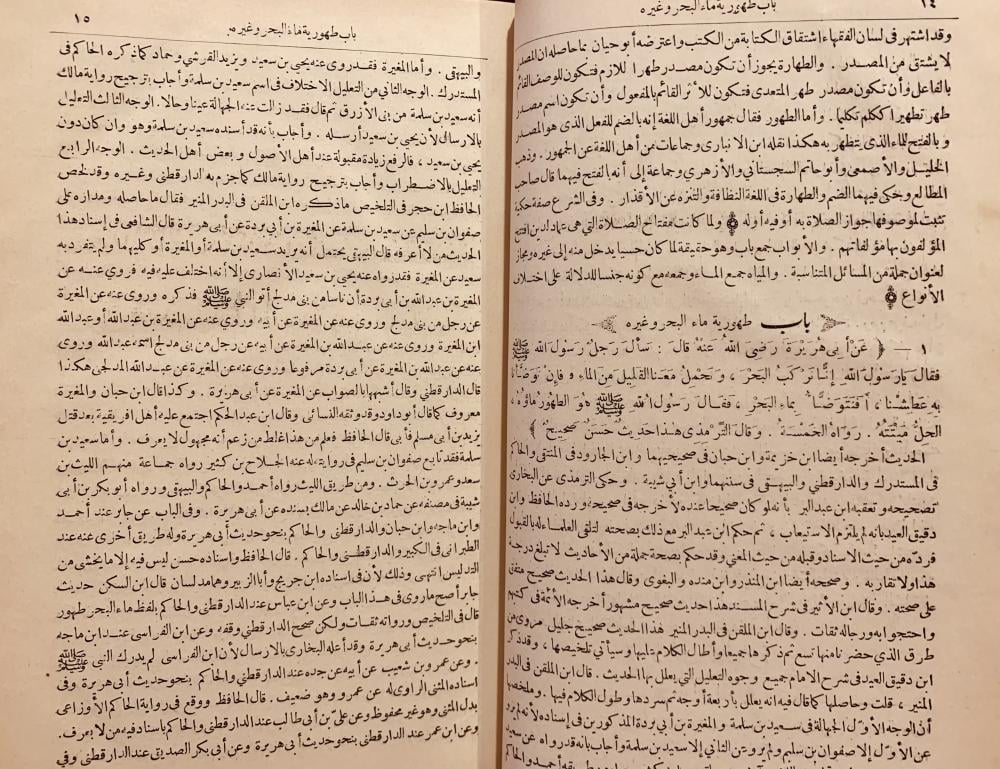 ١٤
باب طهورية ماء البحر وغيره
وقد اشتهر في لسان الفقهاء اشتقاق الكتابة من الكتب واعترضه أبو حيان بما حاصله ان المصدر
لا يشتق من المصدر . والطهارة يجوز أن تكون مصدر طهر اللازم فتكون للوصف القائم
بالفاعل وأن تكون مصدر طهر المتعدى فتكون للأثر القائم بالمفعول وأن تكون اسم مصدر
طهر تطهيرا ككلم تكليما . وأما الطهور فقال جمهور أهل اللغة إنه بالضم للفعل الذى هو المصدر
وبالفتح للماء الذى يتطهر به هكذا نقله ابن الانبارى وجماعات من أهل اللغة عن الجمهور . وذهب
الخليل والأصمعى وأبو حاتم السجستاني والأزهرى وجماعة إلى أنه بالفتح فيهما قال صاحب
المطالع وحكى فيهما الضم والطهارة فى اللغة النظافة والتنزه عن الأقذار . وفى الشرع صفة حكمية
تثبت لموصوفها جواز الصلاة به أو فيه أوله ولما كانت مفتاح الصلاة التى هى عماد الدين افتتح
المؤلفون بها مؤلفاتهم . والأبواب جمع باب وهو حقيقة لما كان حسيا يدخل منه إلى غيره ومجاز
لعنوان جملة من المسائل المتناسبة . والمياه جمع الماء وجمعه مع كونه جنسا للدلالة على اختلاف
الأنواع
باب طهورية ماء البحر وغيره
١ — ﴿ عَنْ أَبِي هُرَيْرَةَ رَضِيَ اللهُ عَنْهُ قَالَ : سَأَلَ رَجُلٌ رَسُولَ اللهِ ﷺ
فَقَالَ يَا رَسُولَ اللهِ إِنَّا نَرْكَبُ الْبَحْرَ ، وَنَحْمِلُ مَعَنَا الْقَلِيلَ مِنَ الْمَاءِ ، فَإِنْ تَوَضَّأْنَا
بِهِ عَطِشْنَا ، أَفَنَتَوَضَّأُ بِمَاءِ الْبَحْرِ ، فَقَالَ رَسُولُ اللهِ ﷺ هُوَ الطَّهُورُ مَاؤُهُ ،
الْحِلُّ مَيْتَتُهُ . رَوَاهُ الْخَمْسَةُ . وَقَالَ التِّرْمِذِى هٰذَا حَدِيثٌ حَسَنٌ صَحِيحٌ ﴾
الحديث أخرجه أيضا ابن خزيمة وابن حبان فى صحيحيهما وابن الجارود فى المنتقى والحاكم
فى المستدرك والدارقطنى والبيهقى فى سننهما وابن أبى شيبة . وحكى الترمذى عن البخارى
تصحيحه وتعقبه ابن عبد البر بأنه لو كان صحيحا عنده لأخرجه فى صحيحه ورده الحافظ وابن
دقيق العيد بانه لم يلتزم الاستيعاب ، ثم حكم ابن عبد البر مع ذلك بصحته لتلقى العلماء له بالقبول
فرده من حيث الاسناد وقبله من حيث المعنى وقد حكم بصحة جملة من الأحاديث لا تبلغ درجة
هذا ولا تقاربه . وصححه أيضا ابن المنذر وابن منده والبغوى وقال هذا الحديث صحيح متفق
على صحته . وقال ابن الأثير فى شرح المسند هذا حديث صحيح مشهور أخرجه الأئمة فى كتبهم
واحتجوا به ورجاله ثقات . وقال ابن الملقن فى البدر المنير هذا الحديث صحيح جليل مروى من
طرق الذى حضرنا منها تسع ثم ذكرها جميعا وأطال الكلام عليها وسيأتى تلخيصها ، وقد ذكر
ابن دقيق العيد فى شرح الامام جميع وجوه التعليل التى يعلل بها الحديث . قال ابن الملقن فى البدر
المنير ، قلت وحاصلها كما قال فيه انه يعلل بأربعة أوجه ثم سردها وطول الكلام فيها . وملخصها
أن الوجه الأول الجهالة فى سعيد بن سلمة والمغيرة بن أبى بردة المذكورين فى إسناده لأنه لم يرو
عن الأول إلا صفوان بن سليم ولم يرو عن الثانى إلا سعيد بن سلمة وأجاب بأنه قد رواه عن سعيد
أحمد والحاكم
١٥
باب طهورية ماء البحر وغيره
والبيهقى . وأما المغيرة فقد روى عنه يحيى بن سعيد ويزيد القرشى وحماد كما ذكره الحاكم فى
المستدرك . الوجه الثانى من التعليل الاختلاف فى اسم سعيد بن سلمة وأجاب بترجيح رواية مالك
أنه سعيد بن سلمة من بنى الأزرق ثم قال فقد زالت عنه الجهالة عينا وحالا . الوجه الثالث التعليل
بالارسال لأن يحيى بن سعيد أرسله . وأجاب بأنه قد أسنده سعيد بن سلمة وهو وان كان دون
يحيى بن سعيد ، فالرفع زيادة مقبولة عند أهل الأصول وبعض أهل الحديث . الوجه الرابع
التعليل بالاضطراب وأجاب بترجيح رواية مالك كما جزم به الدارقطنى وغيره وقد لخص
الحافظ ابن حجر فى التلخيص ما ذكره ابن الملقن فى البدر المنير فقال ما حاصله ومداره على
صفوان بن سليم عن سعيد بن سلمة عن المغيرة بن أبى بردة عن أبى هريرة قال الشافعى فى إسناد هذا
الحديث من لا أعرفه قال البيهقى يحتمل أنه يريد سعيد بن سلمة أو المغيرة أو كليهما ولم يتفرد به
سعيد عن المغيرة فقد رواه عنه يحيى بن سعيد الأنصارى إلا أنه اختلف عليه فيه فروى عنه عن
المغيرة بن عبد الله بن أبى بردة أن ناسا من بنى مدلج أتوا النبى ﷺ فذكره وروى عنه عن المغيرة
عن رجل من بنى مدلج وروى عنه عن المغيرة عن أبيه وروى عنه عن المغيرة بن عبد الله أو عبد الله
ابن المغيرة وروى عنه عن عبد الله بن المغيرة عن أبيه عن رجل من بنى مدلج اسمه عبد الله وروى
عنه عن عبد الله بن المغيرة عن أبى بردة مرفوعا وروى عنه عن المغيرة عن عبد الله المدلجى هكذا
قال الدارقطنى وقال أشبهها بالصواب عن المغيرة عن أبى هريرة . وكذا قال ابن حبان والمغيرة
معروف كما قال أبو داود وقد وثقه النسائى وقال ابن عبد الحكم اجتمع عليه أهل افريقية بعد قتل
يزيد بن أبى مسلم فأبى قال الحافظ فعلم من هذا غلط من زعم أنه مجهول لا يعرف . وأما سعيد بن
سلمة فقد تابع صفوان بن سليم فى روايته له عنه الجلاح بن كثير رواه جماعة منهم الليث بن
سعد وعمرو بن الحرث . ومن طريق الليث رواه أحمد والحاكم والبيهقى ورواه أبو بكر بن أبى
شيبة فى مصنفه عن حماد بن خالد عن مالك بسنده عن أبى هريرة . وفى الباب عن جابر عند أحمد
وابن ماجه وابن حبان والدارقطنى والحاكم بنحو حديث أبى هريرة وله طريق أخرى عنه عند
الطبرانى فى الكبير والدارقطنى والحاكم . قال الحافظ واسناده حسن ليس فيه إلا ما يخشى من
التدليس انتهى وذلك لأن فى اسناده ابن جريج وأبا الزبير وهما مدلسان قال ابن السكن حديث
جابر أصح ما روى فى هذا الباب وعن ابن عباس عند الدارقطنى والحاكم بلفظ ماء البحر طهور
قال فى التلخيص ورواته ثقات ولكن صحح الدارقطنى وقفه وعن ابن الفراسى عند ابن ماجه
بنحو حديث أبى هريرة وقد أعله البخارى بالارسال لأن ابن الفراسى لم يدرك النبى ﷺ
. وعن عمرو بن شعيب عن أبيه عن جده عند الدارقطنى والحاكم بنحو حديث أبى هريرة وفى
اسناده المثنى الراوى له عن عمرو وهو ضعيف . قال الحافظ ووقع فى رواية الحاكم الأوزاعى
بدل المثنى وهو غير محفوظ وعن على بن أبى طالب عند الدارقطنى والحاكم باسناد فيه من لا يعرف.
وعن ابن عمر عند الدارقطنى بنحو حديث أبى هريرة وعن أبى بكر الصديق عند الدارقطنى وفى